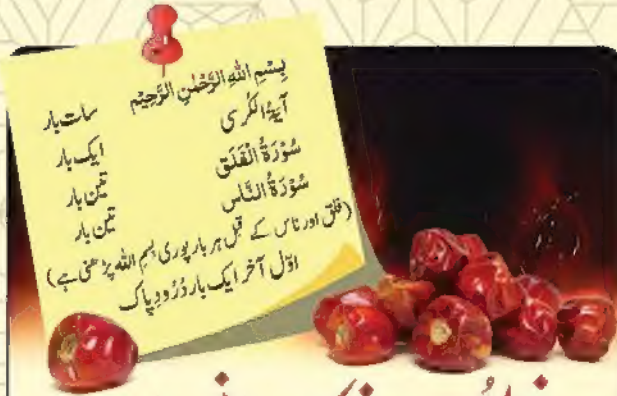 بِسْمِ اللهِ الرَّحْمٰنِ الرَّحِيْمِ سات بار
آیۃُ الکُرسی ایک بار
سُوْرَۃُ الْفَلَق تین بار
سُوْرَۃُ النَّاس تین بار
(فلق اور ناس کے قبل ہر بار پوری بسم اللہ پڑھنی ہے)
اوّل آخر ایک بار دُرُودِ پاک